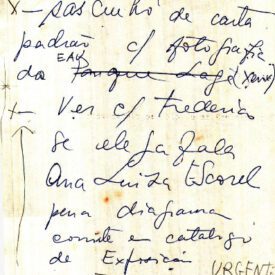 x - rascunho de carta
padrão c/ fotografia
EAV
do Parque Lage (xerox)
x - Ver c/ Frederico
se ele já fala
Ana Luiza Escorel
para diagramar
convite e catalogo
de Exposición
URGENT